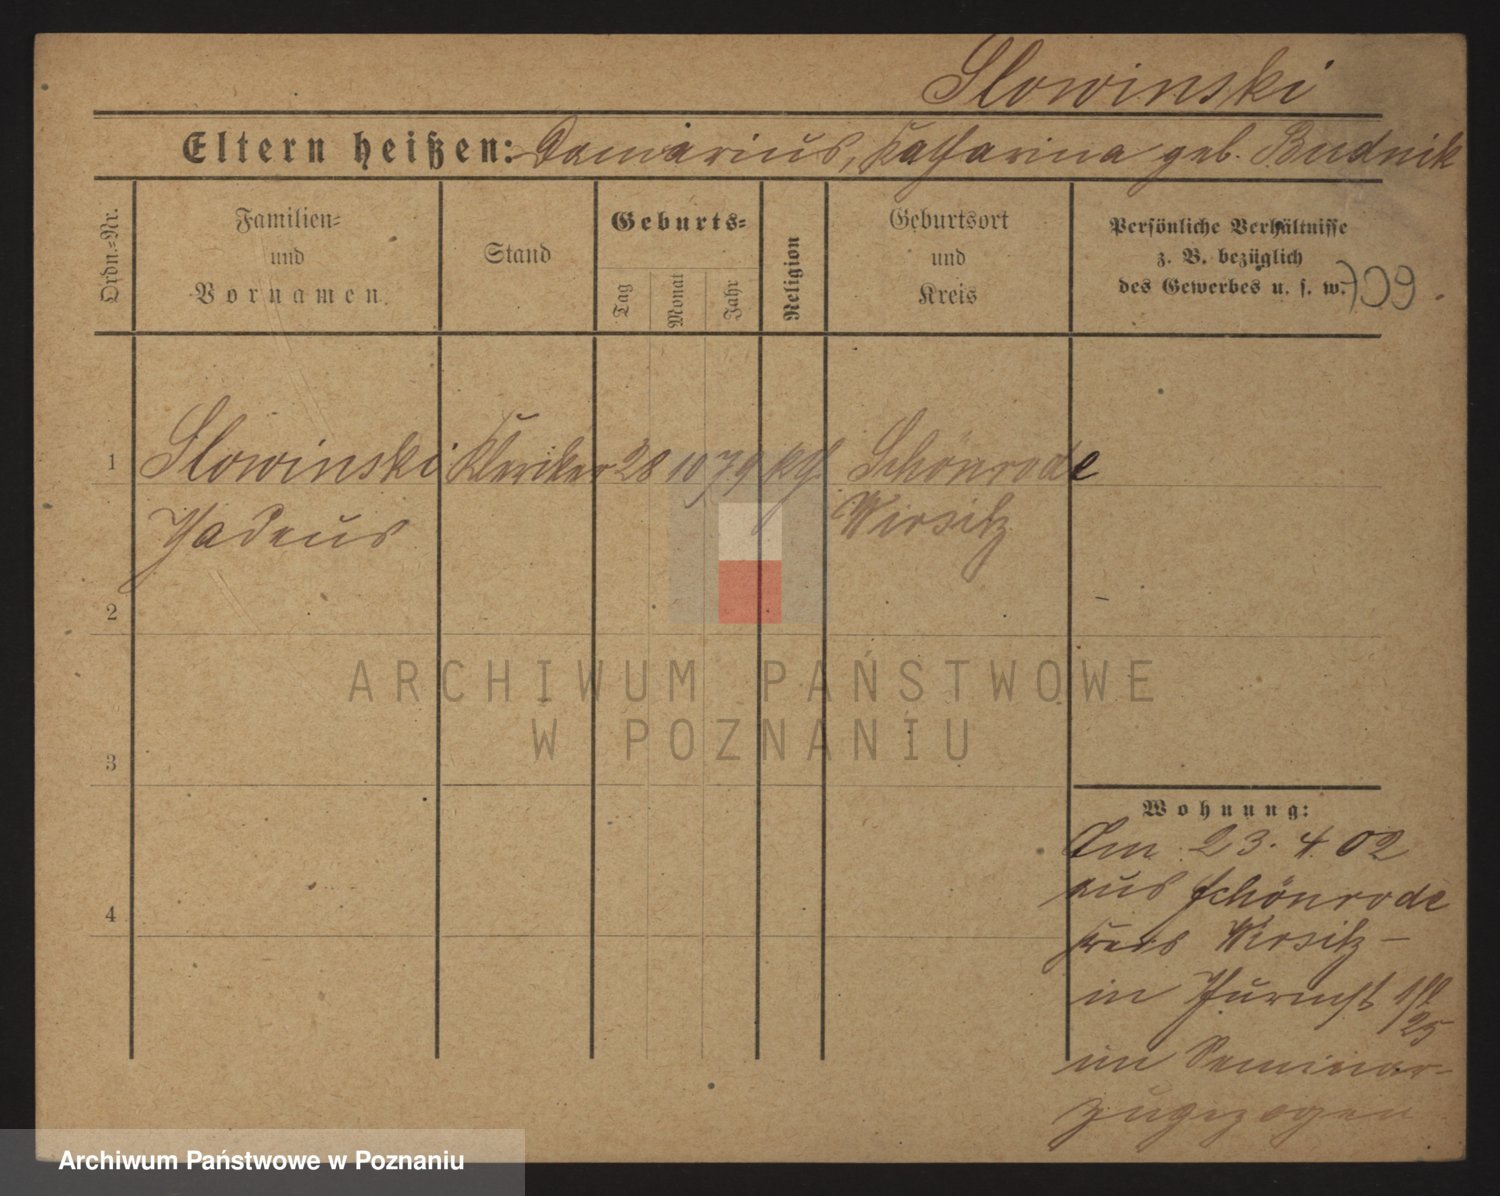 Slowinski
Eltern heißen: Damarius, Katharina geb. Budnik
Ordn.=Nr.
Familien=
und
Vornamen.
Stand
Geburts=
Tag
Monat
Jahr
Religion
Geburtsort
und
Kreis
Persönliche Verhältnisse
z. B. bezüglich
des Gewerbes u. s. w.
709
1 Slowinski Kleriker 28 10 79 kth. Schönrode
Thadeus Wirsitz
2
3
4
Wohnung:
Am 23. 4. 02
aus Schönrode
Kreis Wirsitz –
in
im Seminar
zugezogen
ARCHIWUM PAŃSTWOWE
W POZNANIU
Archiwum Państwowe w Poznaniu